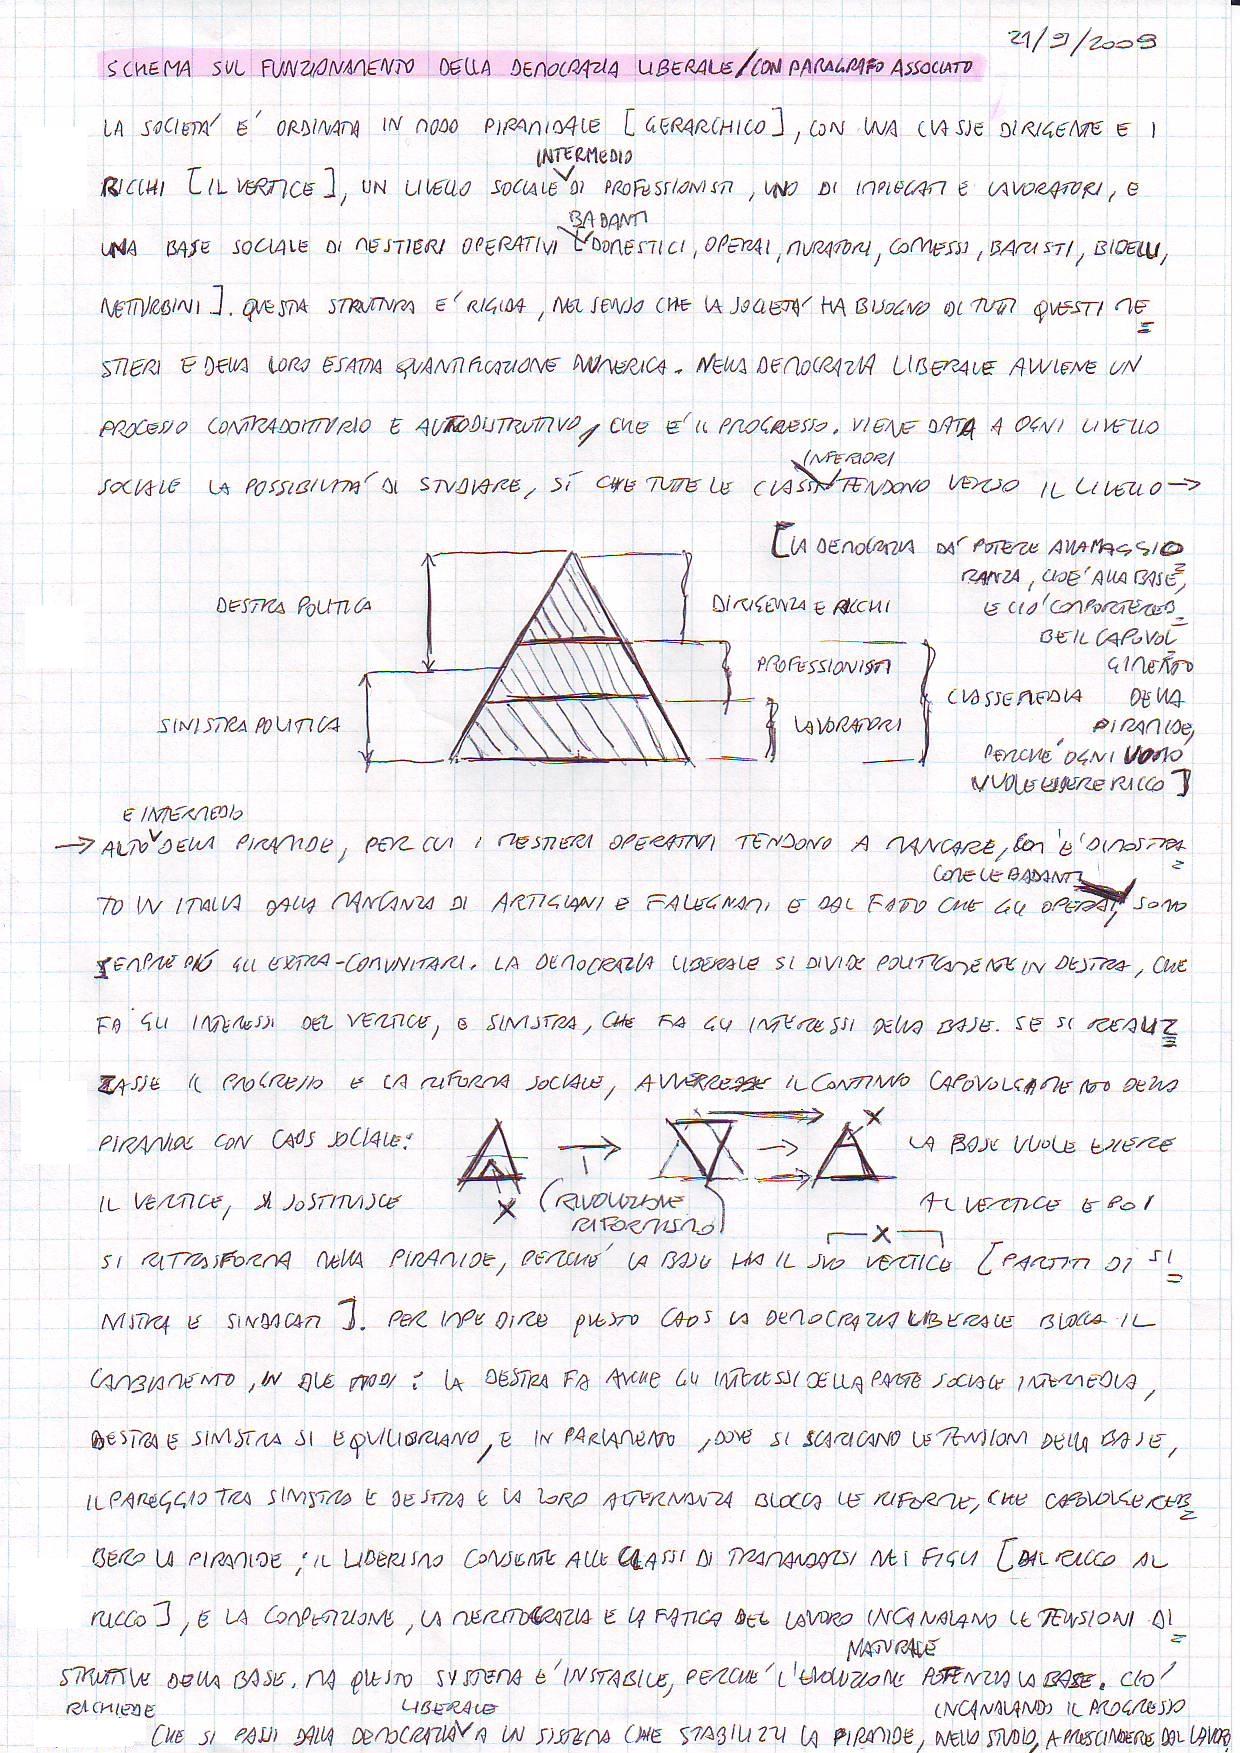 21/9/2009
SCHEMA SUL FUNZIONAMENTO DELLA DEMOCRAZIA LIBERALE/CON PARAGRAFO ASSOCIATO
LA SOCIETA' E' ORDINATA IN MODO PIRAMIDALE [GERARCHICO], CON UNA CLASSE DIRIGENTE E I
INTERMEDIO
RICCHI [IL VERTICE], UN LIVELLO SOCIALE DI PROFESSIONISTI, UNO DI IMPIEGATI E LAVORATORI, E
BADANTI
UNA BASE SOCIALE DI MESTIERI OPERATIVI [DOMESTICI, OPERAI, MURATORI, COMMESSI, BARISTI, BIDELLI,
NETTURBINI]. QUESTA STRUTTURA E' RIGIDA, NEL SENSO CHE LA SOCIETA' HA BISOGNO DI TUTTI QUESTI ME=
STIERI E DELLA LORO ESATTA QUANTIFICAZIONE NUMERICA. NELLA DEMOCRAZIA LIBERALE AVVIENE UN
PROCESSO CONTRADDITTORIO E AUTODISTRUTTIVO, CHE E' IL PROGRESSO. VIENE DATA A OGNI LIVELLO
INFERIORI
SOCIALE LA POSSIBILITA' DI STUDIARE, SÌ CHE TUTTE LE CLASSI TENDONO VERSO IL LIVELLO →
[LA DEMOCRAZIA DA' POTERE ALLA MAGGIO=
RANZA, CIOE' ALLA BASE,
DESTRA POLITICA
DIRIGENZA E RICCHI
E CIO' COMPORTEREB=
BE IL CAPOVOL=
PROFESSIONISTI
GIMENTO
SINISTRA POLITICA
LAVORATORI
CLASSE MEDIA
DELLA
PIRAMIDE,
PERCHE' OGNI UOMO
VUOLE ESSERE RICCO]
E INTERMEDIO
→ ALTO DELLA PIRAMIDE, PER CUI I MESTIERI OPERATIVI TENDONO A MANCARE, COM'E' DIMOSTRA=
COME LE BADANTI
TO IN ITALIA DALLA MANCANZA DI ARTIGIANI E FALEGNAMI E DAL FATTO CHE GLI OPERAI, SONO
SEMPRE PIÙ GLI EXTRA-COMUNITARI. LA DEMOCRAZIA LIBERALE SI DIVIDE POLITICAMENTE IN DESTRA, CHE
FA GLI INTERESSI DEL VERTICE, E SINISTRA, CHE FA GLI INTERESSI DELLA BASE. SE SI REALIZ=
ZASSE IL PROGRESSO E LA RIFORMA SOCIALE, AVVERREBBE IL CONTINUO CAPOVOLGIMENTO DELLA
PIRAMIDE CON CAOS SOCIALE: X → → X LA BASE VUOLE ESSERE
IL VERTICE, SI SOSTITUISCE (RIVOLUZIONE RIFORMISMO) AL VERTICE E POI
X
SI RITRASFORMA NELLA PIRAMIDE, PERCHE' LA BASE HA IL SUO VERTICE [PARTITI DI SI=
NISTRA E SINDACATI]. PER IMPEDIRE QUESTO CAOS LA DEMOCRAZIA LIBERALE BLOCCA IL
CAMBIAMENTO, IN DUE MODI: LA DESTRA FA ANCHE GLI INTERESSI DELLA PARTE SOCIALE INTERMEDIA,
DESTRA E SINISTRA SI EQUILIBRIANO, E IN PARLAMENTO, DOVE SI SCARICANO LE TENSIONI DELLA BASE,
IL PAREGGIO TRA SINISTRA E DESTRA E LA LORO ALTERNANZA BLOCCA LE RIFORME, CHE CAPOVOLGEREB=
BERO LA PIRAMIDE; IL LIBERISMO CONSENTE ALLE CLASSI DI TRAMANDARSI NEI FIGLI [DAL RICCO AL
RICCO], E LA COMPETIZIONE, LA MERITOCRAZIA E LA FATICA DEL LAVORO INCANALANO LE TENSIONI DI=
NATURALE
STRUTTIVE DELLA BASE. MA QUESTO SYSTEMA E' INSTABILE, PERCHE' L'EVOLUZIONE POTENZIA LA BASE. CIO'
RICHIEDE LIBERALE INCANALANDO IL PROGRESSO
CHE SI PASSI DALLA DEMOCRAZIA A UN SISTEMA CHE STABILIZZI LA PIRAMIDE, NELLO STUDIO, A PRESCINDERE DAL LAVORO